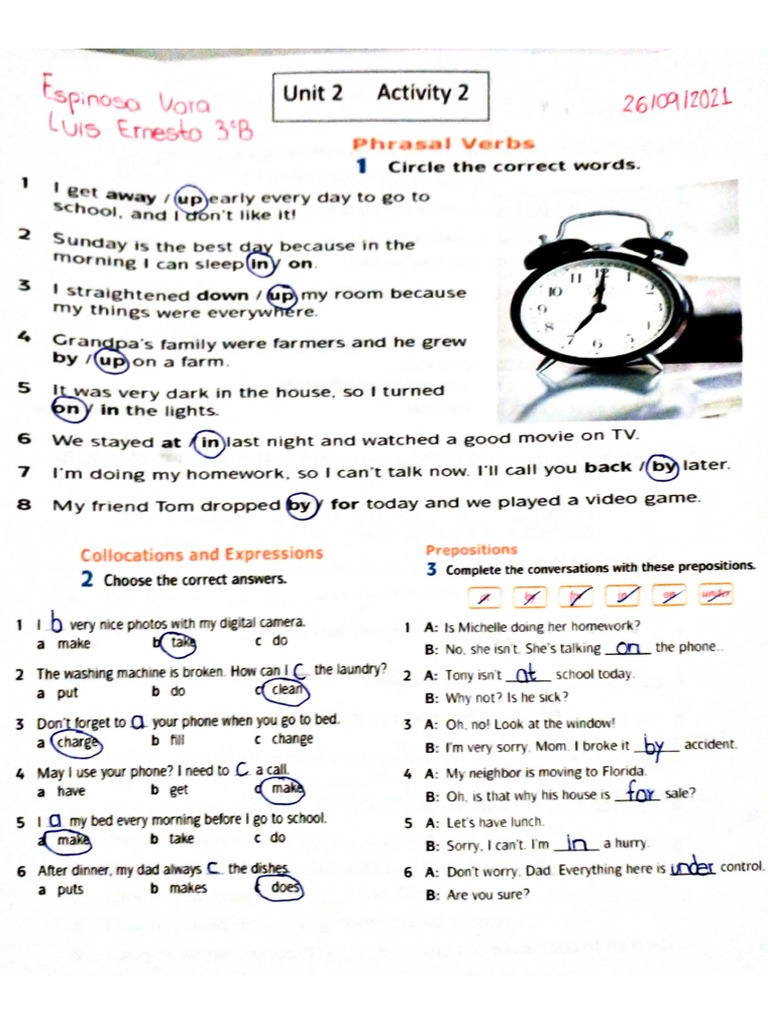 Espinosa Vara
Luis Ernesto 3°B
Unit 2 Activity 2
26/09/2021
Phrasal Verbs
1 Circle the correct words.
1 I get away / up early every day to go to
school, and I don't like it!
2 Sunday is the best day because in the
morning I can sleep in / on.
3 I straightened down / up my room because
my things were everywhere.
4 Grandpa's family were farmers and he grew
by / up on a farm.
5 It was very dark in the house, so I turned
on / in the lights.
6 We stayed at / in last night and watched a good movie on TV.
7 I'm doing my homework, so I can't talk now. I'll call you back / by later.
8 My friend Tom dropped by / for today and we played a video game.
Collocations and Expressions
2 Choose the correct answers.
1 I b very nice photos with my digital camera.
a make b take c do
2 The washing machine is broken. How can I c the laundry?
a put b do c clean
3 Don't forget to a your phone when you go to bed.
a charge b fill c change
4 May I use your phone? I need to c a call.
a have b get c make
5 I a my bed every morning before I go to school.
a make b take c do
6 After dinner, my dad always c the dishes.
a puts b makes c does
Prepositions
3 Complete the conversations with these prepositions.
at by for in on under
1 A: Is Michelle doing her homework?
B: No, she isn't. She's talking on the phone..
2 A: Tony isn't at school today.
B: Why not? Is he sick?
3 A: Oh, no! Look at the window!
B: I'm very sorry. Mom. I broke it by accident.
4 A: My neighbor is moving to Florida.
B: Oh, is that why his house is for sale?
5 A: Let's have lunch.
B: Sorry, I can't. I'm in a hurry.
6 A: Don't worry, Dad. Everything here is under control.
B: Are you sure?